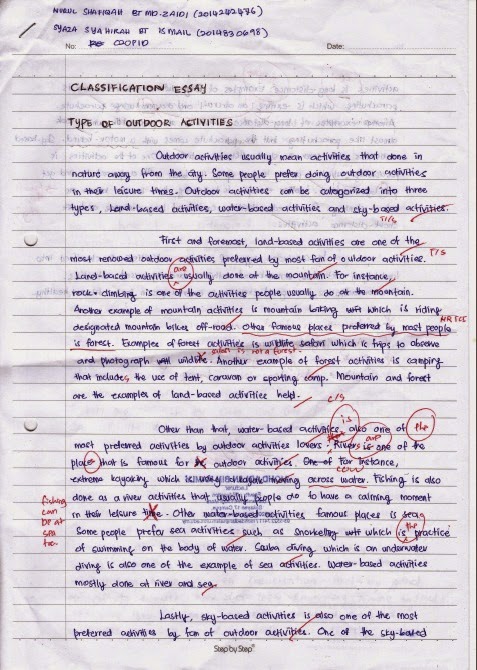 NURUL SHAFIQAH BT MD. ZAIDI (2014242476)
SYAZA SYAHIRAH BT ISMAIL (2014830698)
No: CDOP1D Date:
CLASSIFICATION ESSAY
TYPE OF OUTDOOR ACTIVITIES
Outdoor activities usually mean activities that done in
nature away from the city. Some people prefer doing outdoor activities
in their leisure times. Outdoor activities can be categorized into three
types, land-based activities, water-based activities and sky-based activities.
T/S
First and foremost, land-based activities are one of the
most renowed outdoor activities preferred by most fan of outdoor activities. T/S
are
Land-based activities usually done at the mountain. For instance,
rock-climbing is one of the activities people usually do at the mountain.
Another example of mountain activities is mountain biking which is riding
designated mountain bikes off-road. Other famous places preferred by most people
is forest. Examples of forest activities is wildlife safari which is trips to observe
safari is not a forest.
and photograph wildlife. Another example of forest activities is camping
that includes the use of tent, caravan or sporting camp. Mountain and forest
are the examples of land-based activities held. C/S
is
Other than that, water-based activities, also one of the
most preferred activities by outdoor activities lovers. Rivers is one of the
are
place that is famous for outdoor activities. One of for instance,
extreme kayaking which is moving across water. Fishing is also
done as a river activities that usually people do to have a calming moment
fishing can be at sea too.
in their leisure time. Other water-based activities famous places is sea.
Some people prefer sea activities such as snorkelling which is practice
the
of swimming on the body of water. Scuba diving which is an underwater
diving is also one of the example of sea activities. Water-based activities
mostly done at river and sea.
Lastly, sky-based activities is also one of the most
preferred activities by fan of outdoor activities. One of the sky-based
Step by Step